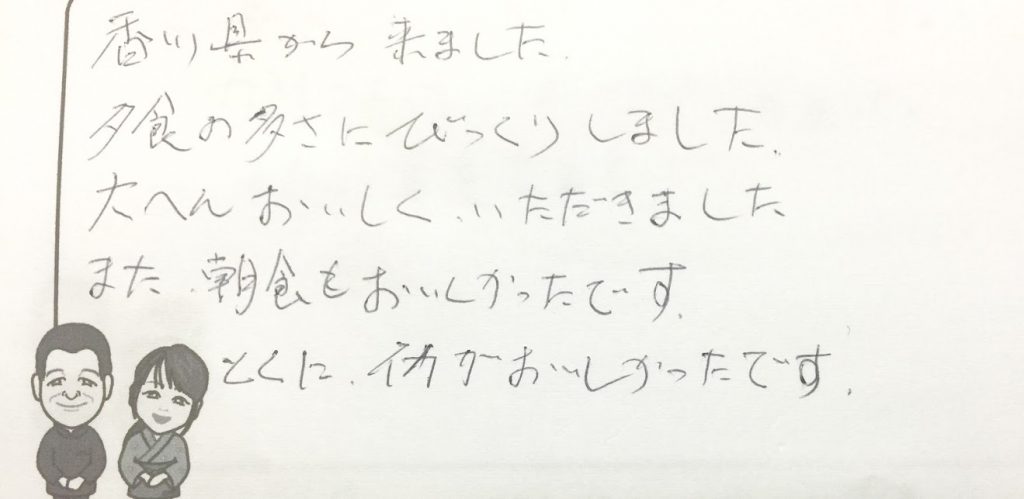 香川県から 来ました.
夕食の多さにびっくりしました.
大へん おいしく.いただきました
また.朝食もおいしかったです.
とくに.イカがおいしかったです.